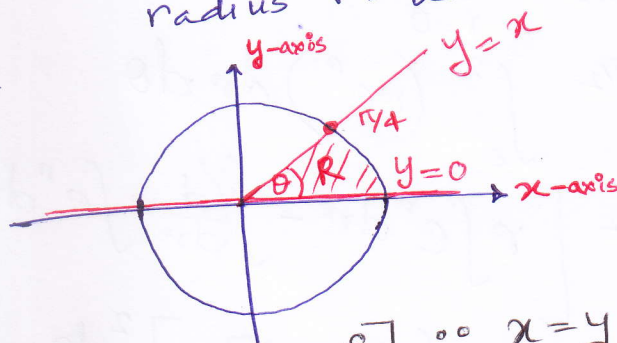 radius
y-axis
y=x
π/4
θ
R
y=0
x-axis
∵ x=y